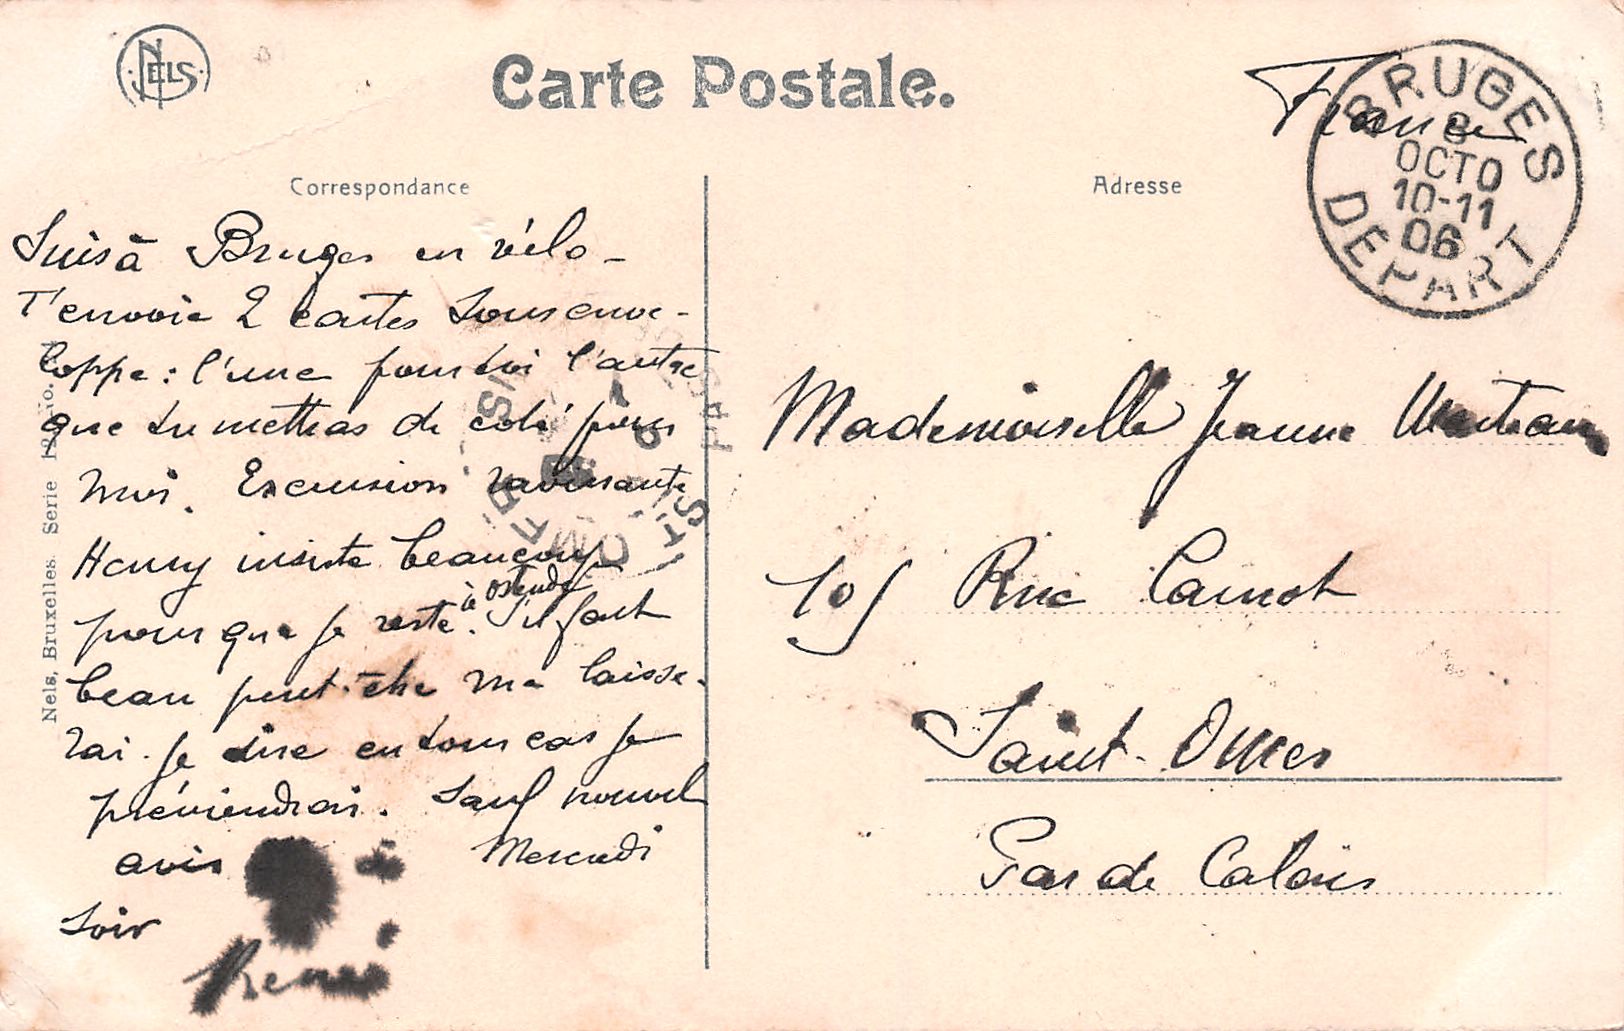 NELS
Carte Postale.
France
BRUGES
8
OCTO
10-11
06
DEPART
Correspondance
Adresse
Suis à Bruges en vélo -
T'envoie 2 cartes sous enve-
loppe : l'une pour toi l'autre
que tu mettras de coté pour
moi. Excursion ravissante
Henry insiste beaucoup
pour que je reste à Ostende. S'il fait
beau peut-être me laisse-
rai-je dire en tous cas je
préviendrai. Sauf nouvel
avis Mercredi
soir
René
Nels, Bruxelles. Serie
Mademoiselle Jeanne
105 Rue Carnot
Saint-Omer
Pas de Calais